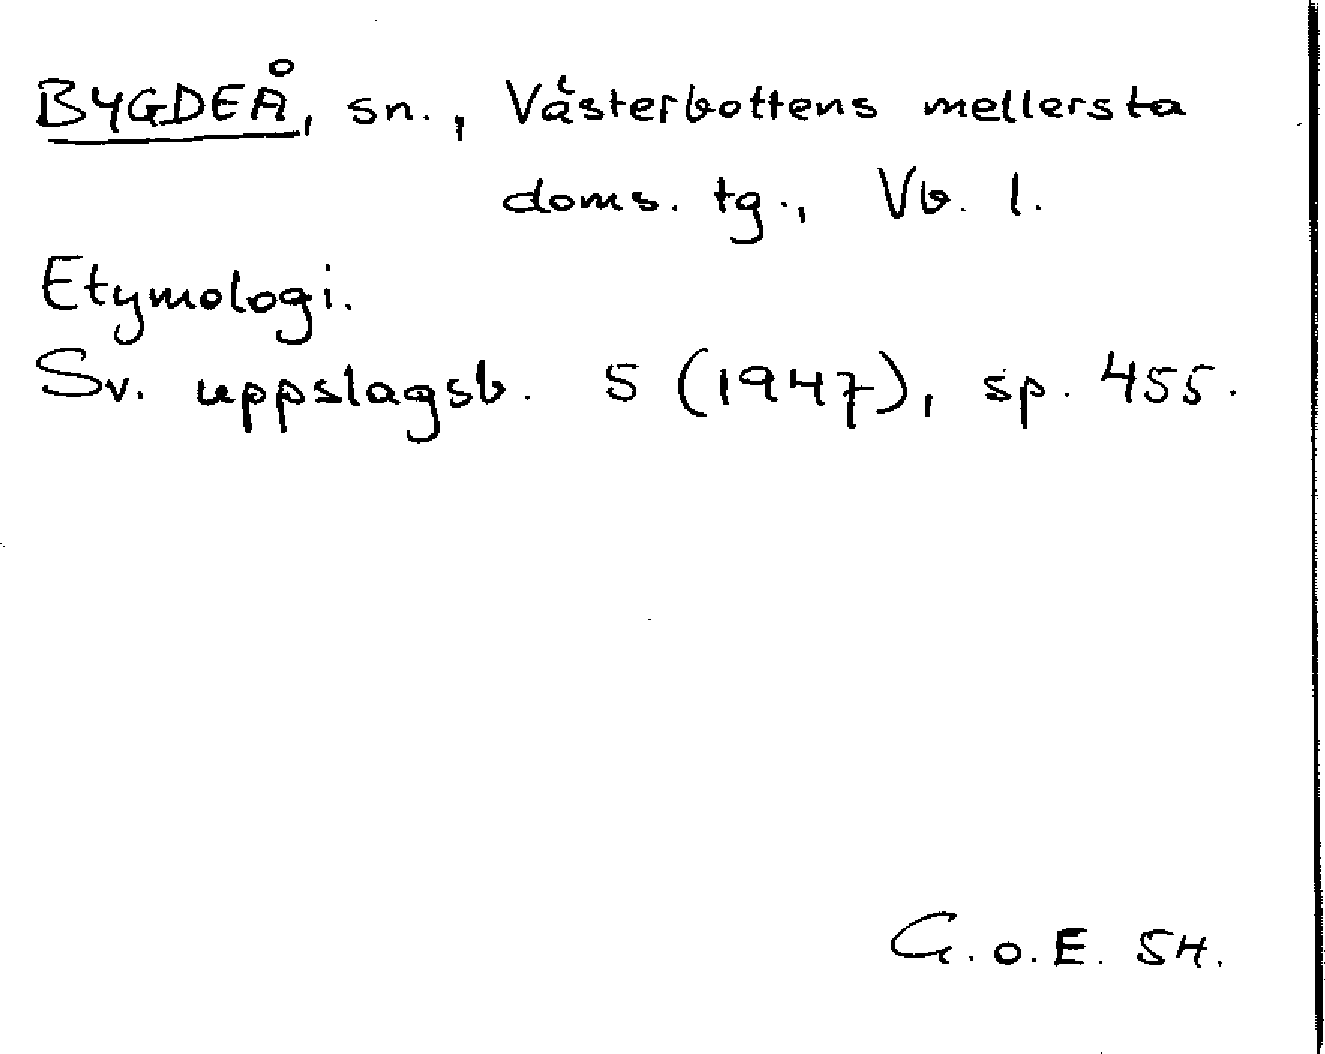 BYGDEÅ, sn., Västerbottens mellersta
doms. tg., Vb. l.
Etymologi.
Sv. uppslagsb. 5 (1947), sp. 455.
G.O.E. 54.